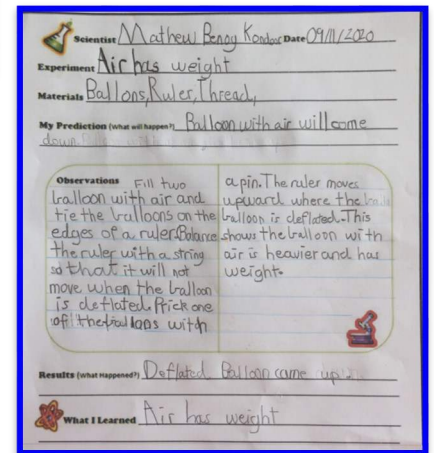 Scientist Mathew Benoy Kondoor Date 09/11/2020
Experiment Air has weight
Materials Ballons, Ruler, Thread,
My Prediction (What will happen?) Balloon with air will come
down.
Observations Fill two
balloon with air and
tie the balloons on the
edges of a ruler. Balance
the ruler with a string
so that it will not
move when the balloon
is deflated. Prick one
of the ballons with
a pin. The ruler moves
upward where the
balloon is deflated. This
shows the balloon with
air is heavier and has
weight.
Results (What Happened?) Deflated Balloon came up
What I Learned Air has weight